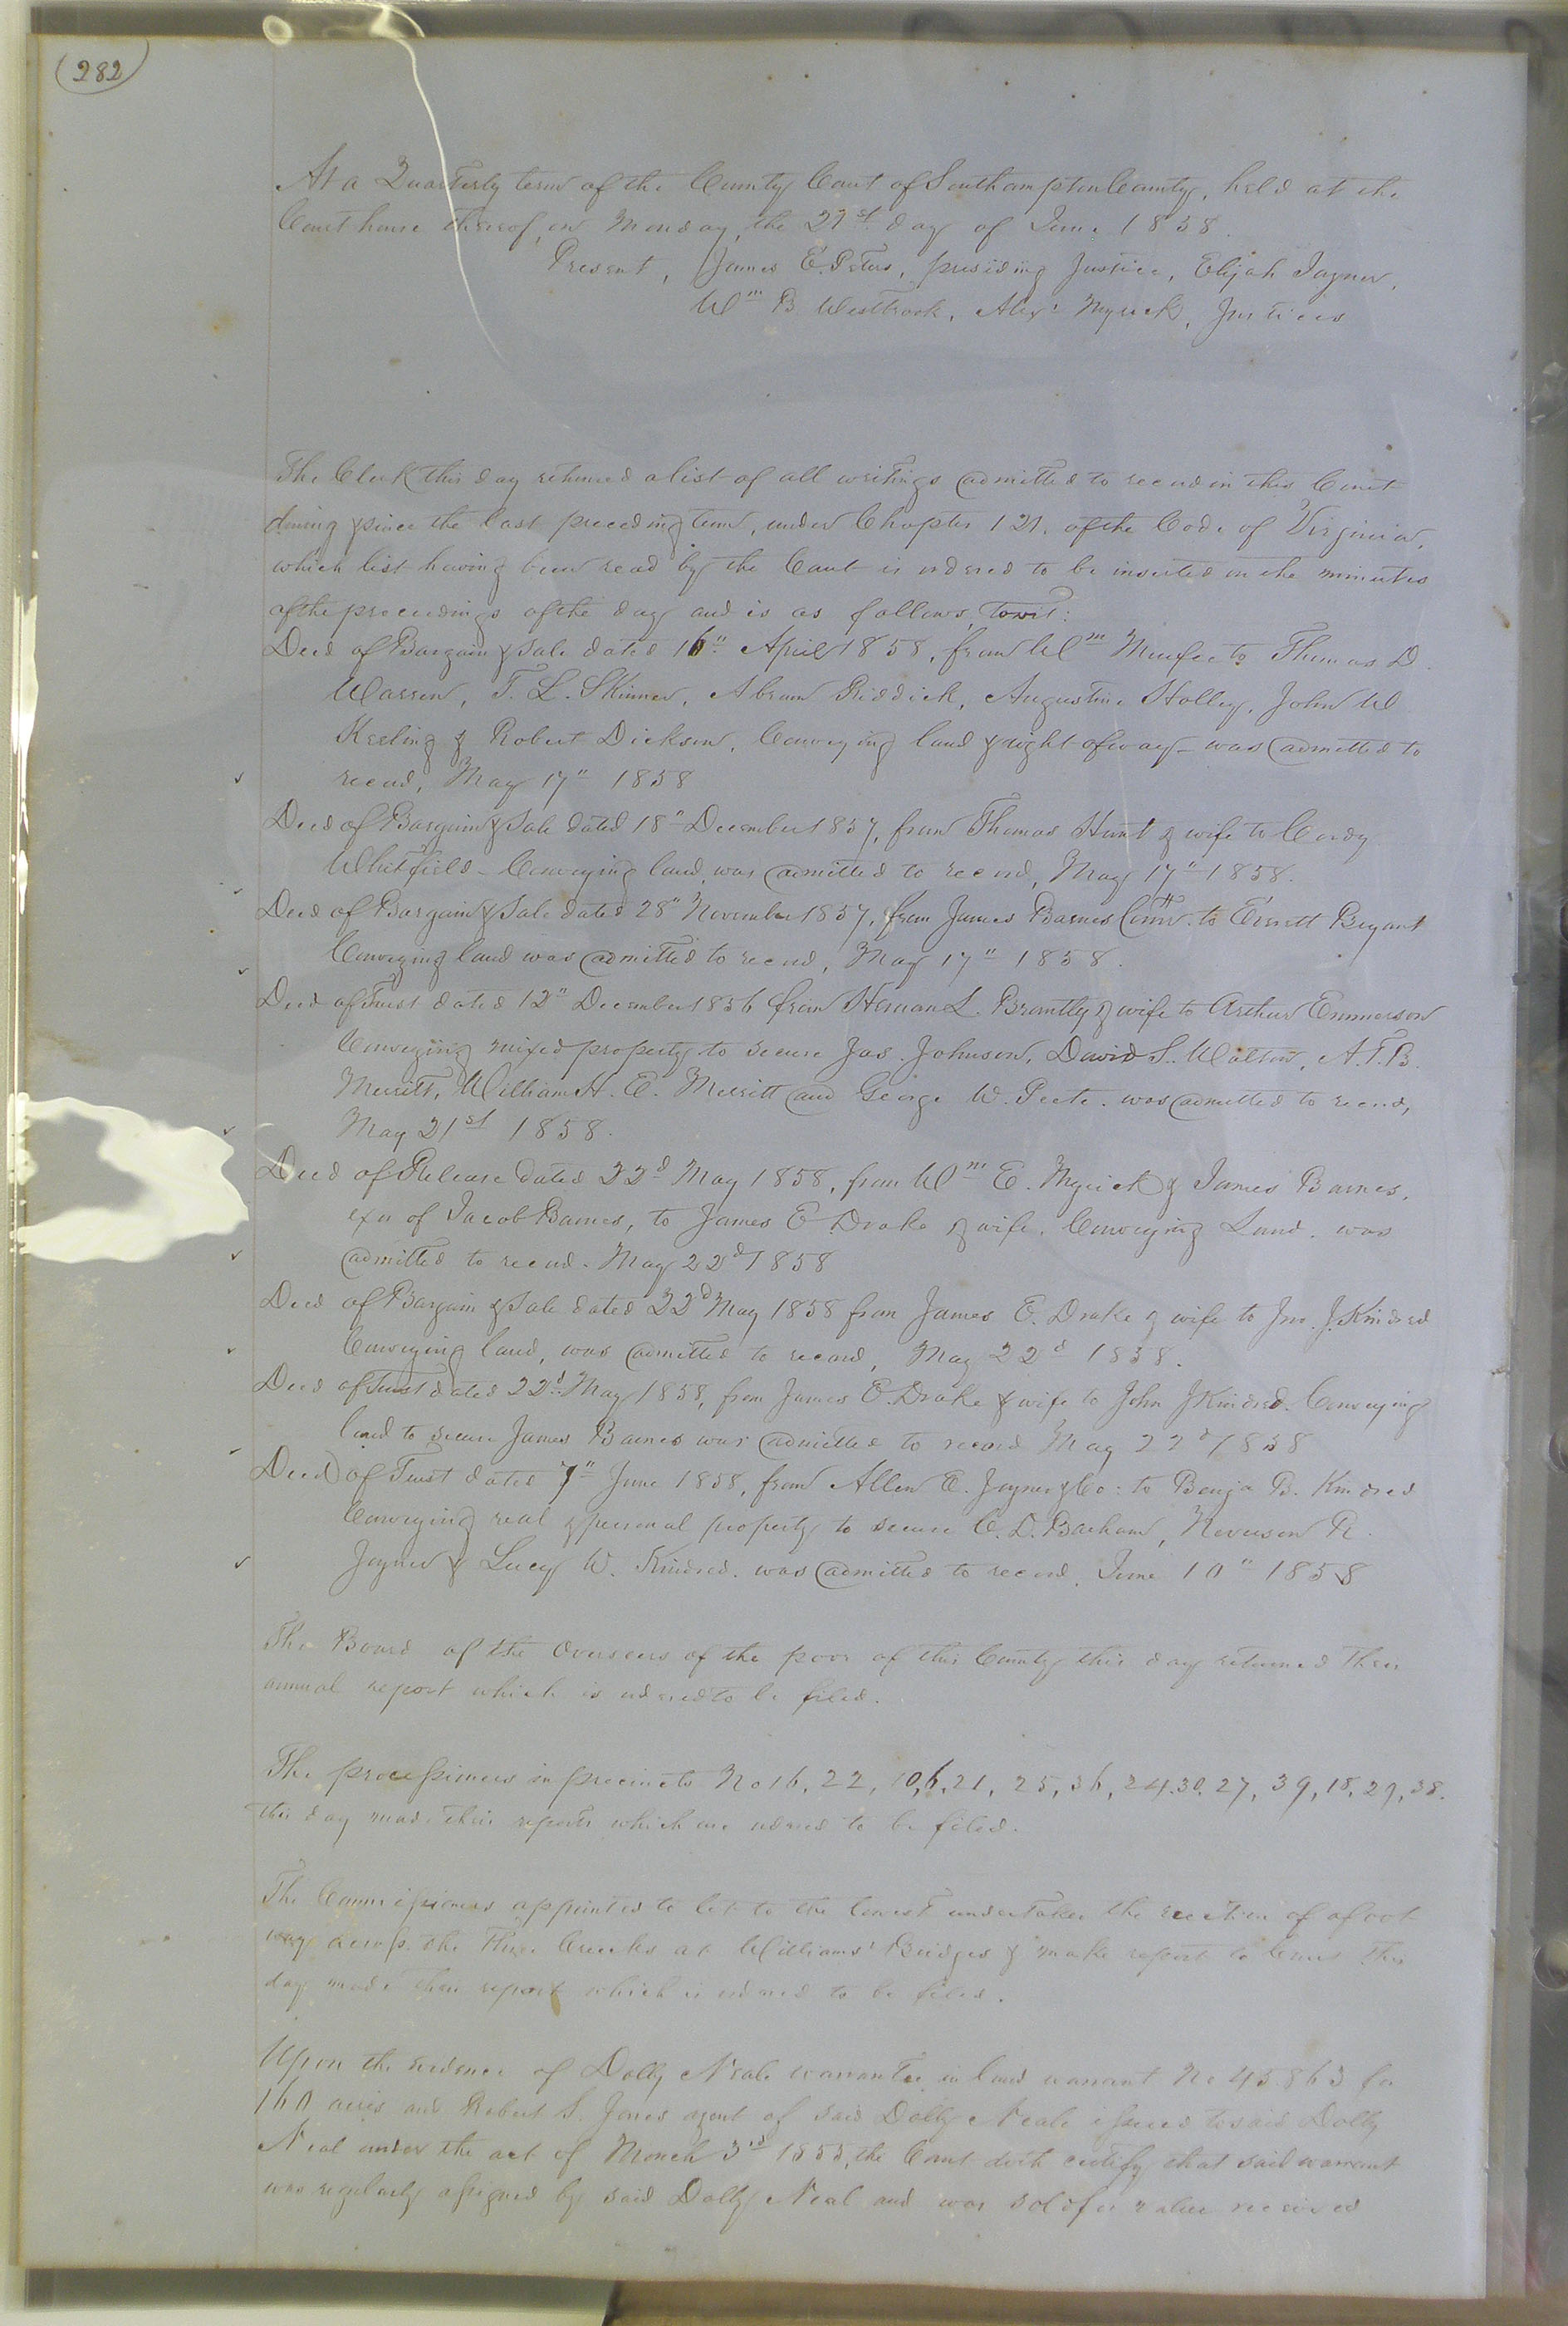 282
At a Quarterly term of the County Court of Southampton County, held at the
Court house thereof, on Monday, the 21st day of June 1858.
Present, James E. Peters, presiding Justice, Elijah Joyner,
Wm B. Westbrook, Alexr Myrick, Justices
The Clerk this day returned a list of all writings admitted to record in this Court
during & since the last preceding term, under Chapter 121. of the Code of Virginia,
which list having been read by the Court is ordered to be inserted in the minutes
of the proceedings of the day and is as follows, towit:
Deed of Bargain & Sale dated 16" April 1858, from Wm to Thomas D.
Warren, T. L. Skinner, Abram Riddick, Augustine Holley, John W
Keeling & Robert Dickson, Conveying land & right of way - was admitted to
record, May 17" 1858
Deed of Bargain & Sale dated 18" December 1857, from Thomas Hunt & wife to Cordy
Whitfield - Conveying land, was admitted to record, May 17" 1858.
Deed of Bargain & Sale dated 28" November 1857, from James Barnes Comr. to Everett Bryant
Conveying land was admitted to record, May 17" 1858.
Deed of Trust dated 12" December 1856 from Herman L. Brantly & wife to Arthur Emmerson
Conveying mixed property to secure Jas. Johnson, David S. Watson, A.T.B.
Merritt, William H. E. Merritt and George W. Peete. was admitted to record,
May 21st 1858.
Deed of Release dated 22d May 1858, from Wm E. Myrick & James Barnes,
exr of Jacob Barnes, to James E Drake & wife. Conveying Land. was
admitted to record. May 22d 1858
Deed of Bargain & Sale dated 22d May 1858 from James E. Drake & wife to Jno. J. Kindred
Conveying land, was admitted to record, May 22d 1858.
Deed of Trust dated 22d May 1858, from James E. Drake & wife to John J Kindred. Conveying
land to secure James Barnes was admitted to record May 22d 1858
Deed of Trust dated 7" June 1858, from Allen E. Joyner & Co: to Benja B. Kindred
Conveying real & personal property to secure C. D. Barham, Neverson R.
Joyner & Lucy W. Kindred. was admitted to record, June 10" 1858
The Board of the Overseers of the poor of this County this day returned their
annual report which is ordered to be filed.
The processioners in precincts No 16, 22, 10, 6, 21, 25, 36, 24, 30, 27, 39, 18, 29, 38.
this day made their reports which are ordered to be filed.
The Commissioners appointed to let to the lowest undertaker the erection of a foot
way across the Three Creeks at Williams' Bridges & make report to Court this
day made their report which is ordered to be filed.
Upon the evidence of Dolly Neale warrantee in land warrant No 45.863 for
160 acres and Robert S. Jones agent of said Dolly Neale issued to said Dolly
Neal under the act of March 3rd 1855, the Court doth certify that said warrant
was regularly assigned by said Dolly Neal and was sold for value received